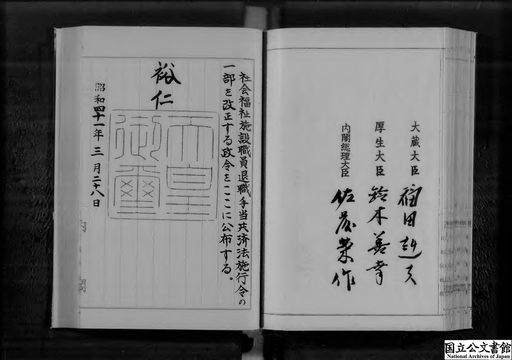 社会福祉施設職員退職手当共済法施行令の
一部を改正する政令をここに公布する。
裕仁
天皇御璽
昭和四十一年三月二十八日
内閣
大蔵大臣 福田赳夫
厚生大臣 鈴木善幸
内閣総理大臣 佐藤栄作
国立公文書館
National Archives of Japan